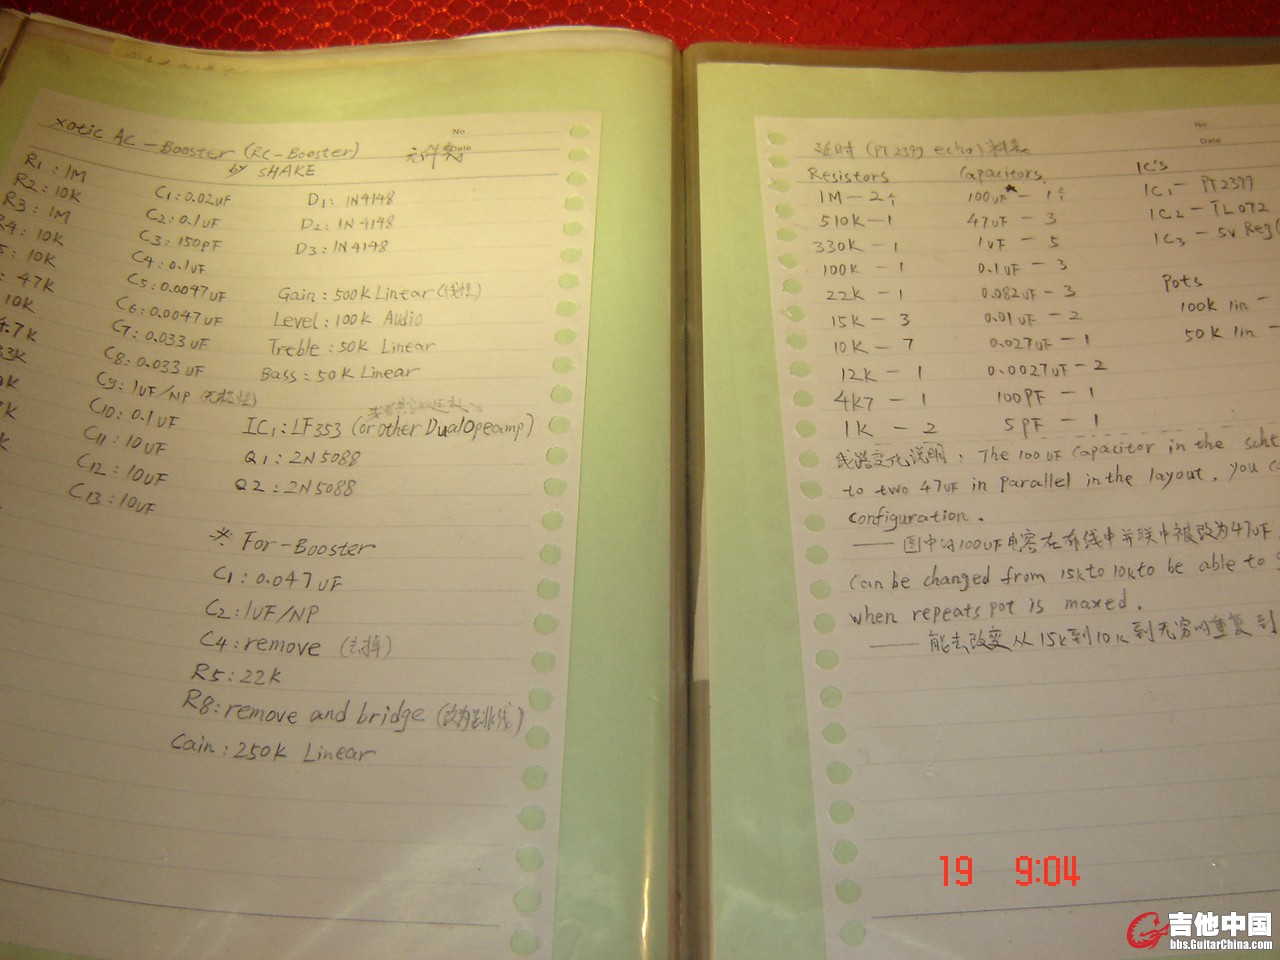 Xotic AC-Booster (RC-Booster) 元件表
by SHAKE
No
Date
R1:1M
R2:10K
R3:1M
R4:10K
5:10K
:47K
10K
4.7K
33K
0K
K
K
C1:0.02uF
C2:0.1uF
C3:150pF
C4:0.1uF
C5:0.0047uF
C6:0.0047uF
C7:0.033uF
C8:0.033uF
C9:1uF/NP(无极性)
C10:0.1uF
C11:10uF
C12:10uF
C13:10uF
D1:1N4148
D2:1N4148
D3:1N4148
Gain:500k Linear(线性)
Level:100k Audio
Treble:50k Linear
Bass:50k Linear
IC1:LF353 (or other Dual Opeamp)
Q1:2N5088
Q2:2N5088
* For-Booster
C1:0.047uF
C2:1uF/NP
C4:remove (去掉)
R5:22K
R8:remove and bridge (改为跳线)
Gain:250K Linear
No
Date
延时(PT2399 echo)料表
Resistors
1M-2个
510K-1
330K-1
100K-1
22K-1
15K-3
10K-7
12K-1
4K7-1
1K-2
Capacitors
100uF*-1个
47uF-3
1uF-5
0.1uF-3
0.082uF-3
0.01uF-2
0.027uF-1
0.0027uF-2
100PF-1
5PF-1
IC's
IC1-PT2399
IC2-TL072
IC3-5V Reg(
Pots
100k lin-
50k lin-
线路变化说明:The 100uF Capacitor in the sche
to two 47uF in parallel in the layout, you c
configuration.
——图中的100uF电容在布线中并联中被改为47uF
Can be changed from 15k to 10k to be able to
when repeats pot is maxed.
——能去改变从15k到10k到无穷的重复到
19 9:04
吉他中国
bbs.GuitarChina.com